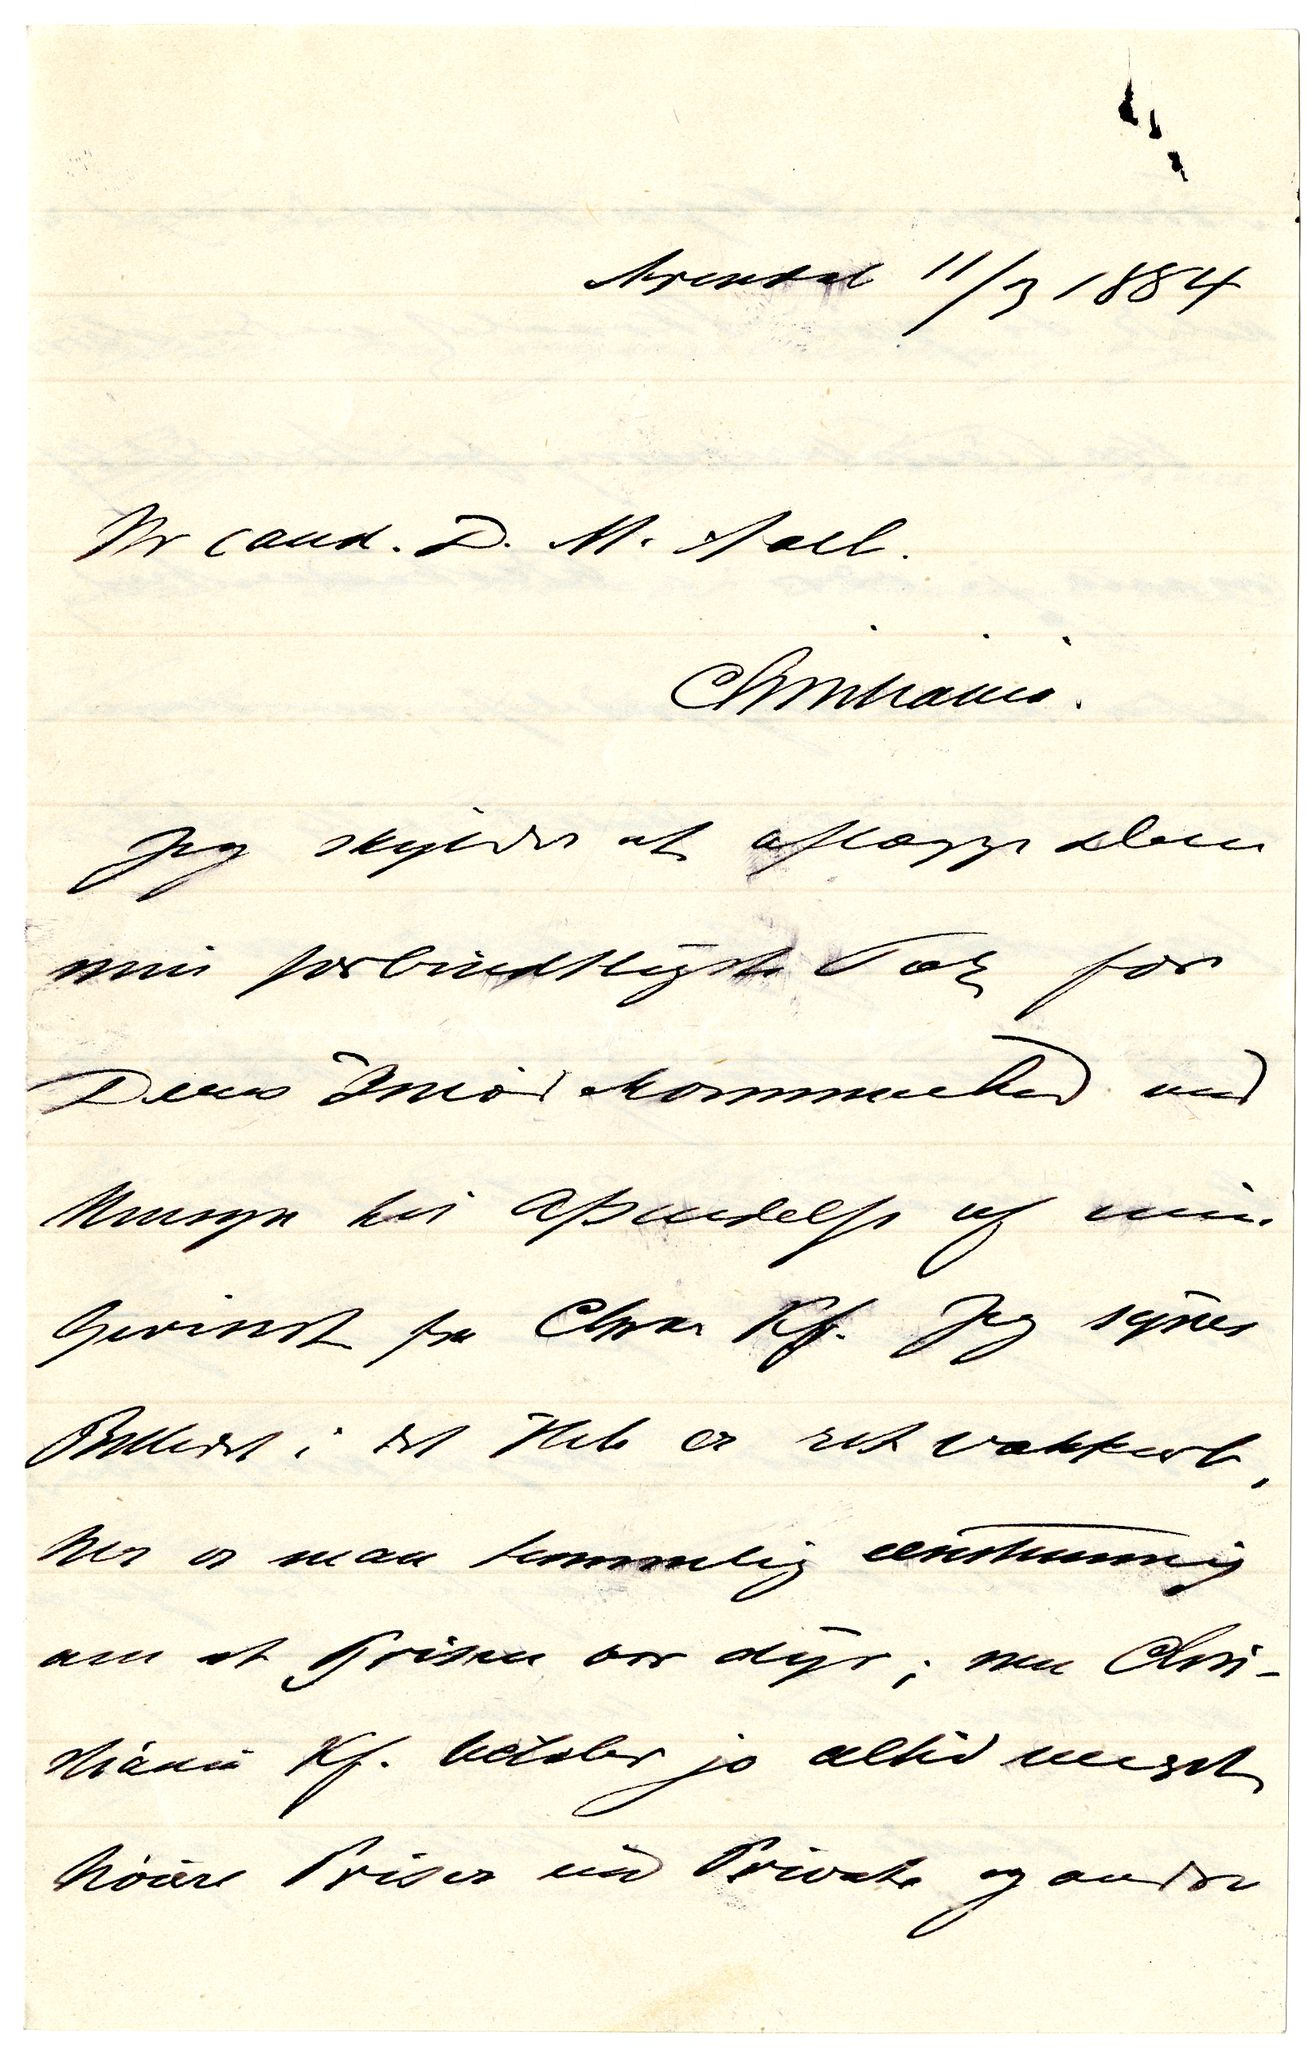 Arendal 11/3 1884
Hr cand. D. M. Aall.
Christiania.
Jeg skylder at aflægge Dem
min forbindtligste Tak for
Deres Imødekommenhed med
Hensyn til Afsendelse af min
Gevinst fra Chra Kf. Jeg synes
Billedet i det Hele er ret vakkert,
her er man temmelig eenstemmig
om at Prisen var dyr; men Chri-
stiania Kf. betaler jo altid meget
høiere Priser end Private og andre